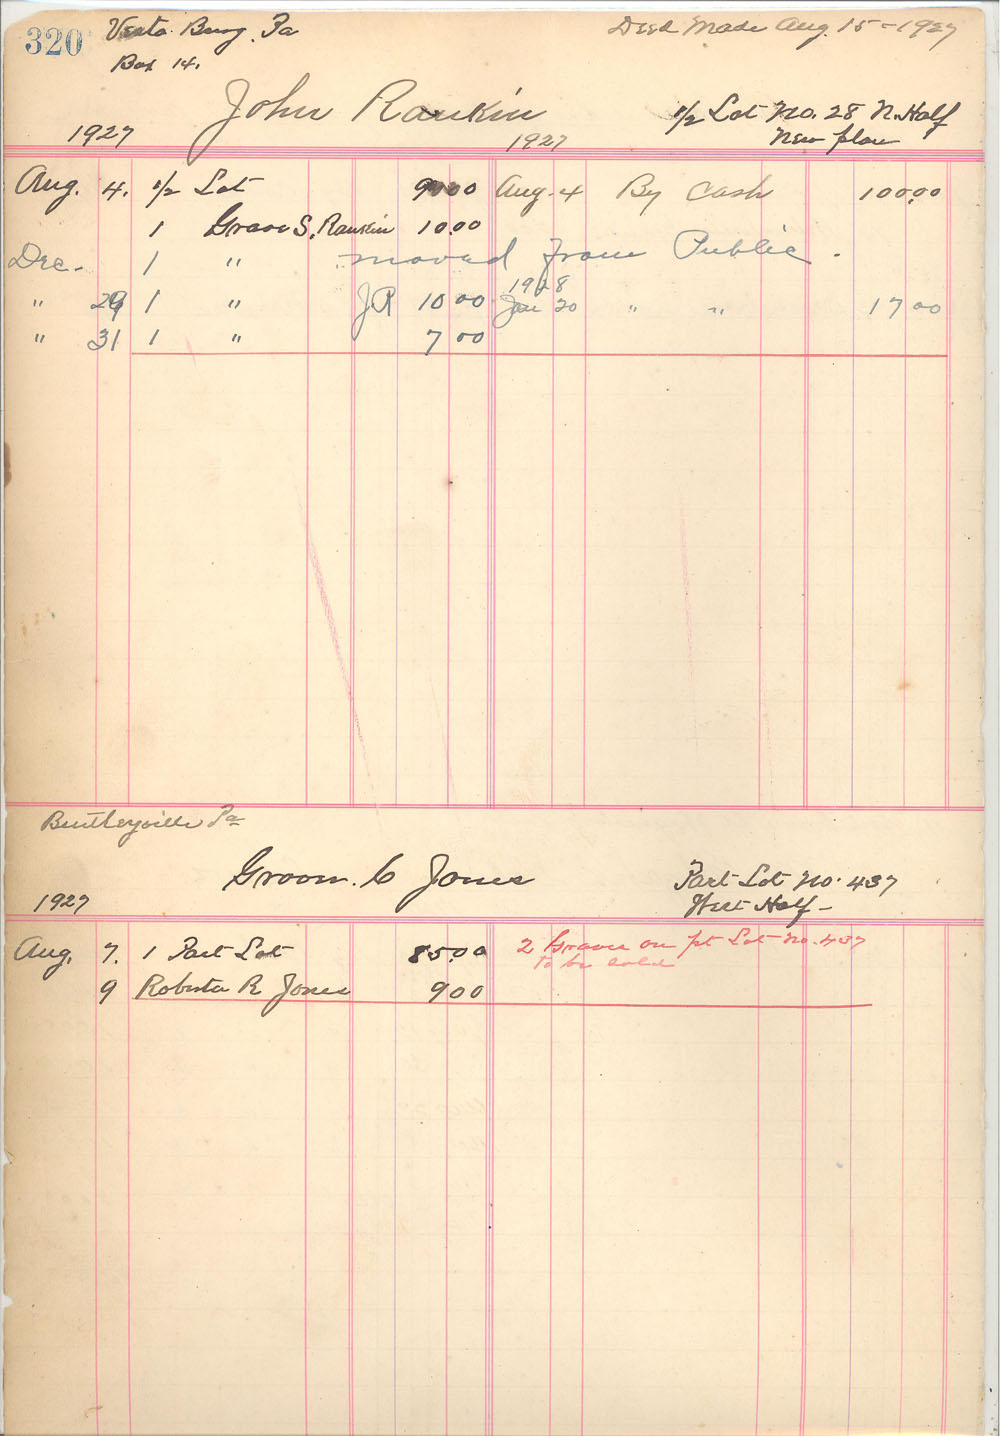 320 Vesta Burg. Pa Deed Made Aug. 15 - 1927
Box 14.
John Rankin 1/2 Lot No. 28 N. Half
1927 1927 New plan
Aug. 4. 1/2 Lot 90 00 Aug. 4 By Cash 100.00
1 Grave S. Rankin 10.00
Dec. 1 " moved from Public.
1928
" 29 1 " J R 10 00 Jan 20 " " 17 00
" 31 1 " 7 00
Bentleyville Pa
Groom. C Jones Part Lot No. 437
1927 West Half -
Aug. 7. 1 Part Lot 85.00 2 Graves on pt Lot No. 437
to be sold
9 Roberta R Jones 9 00